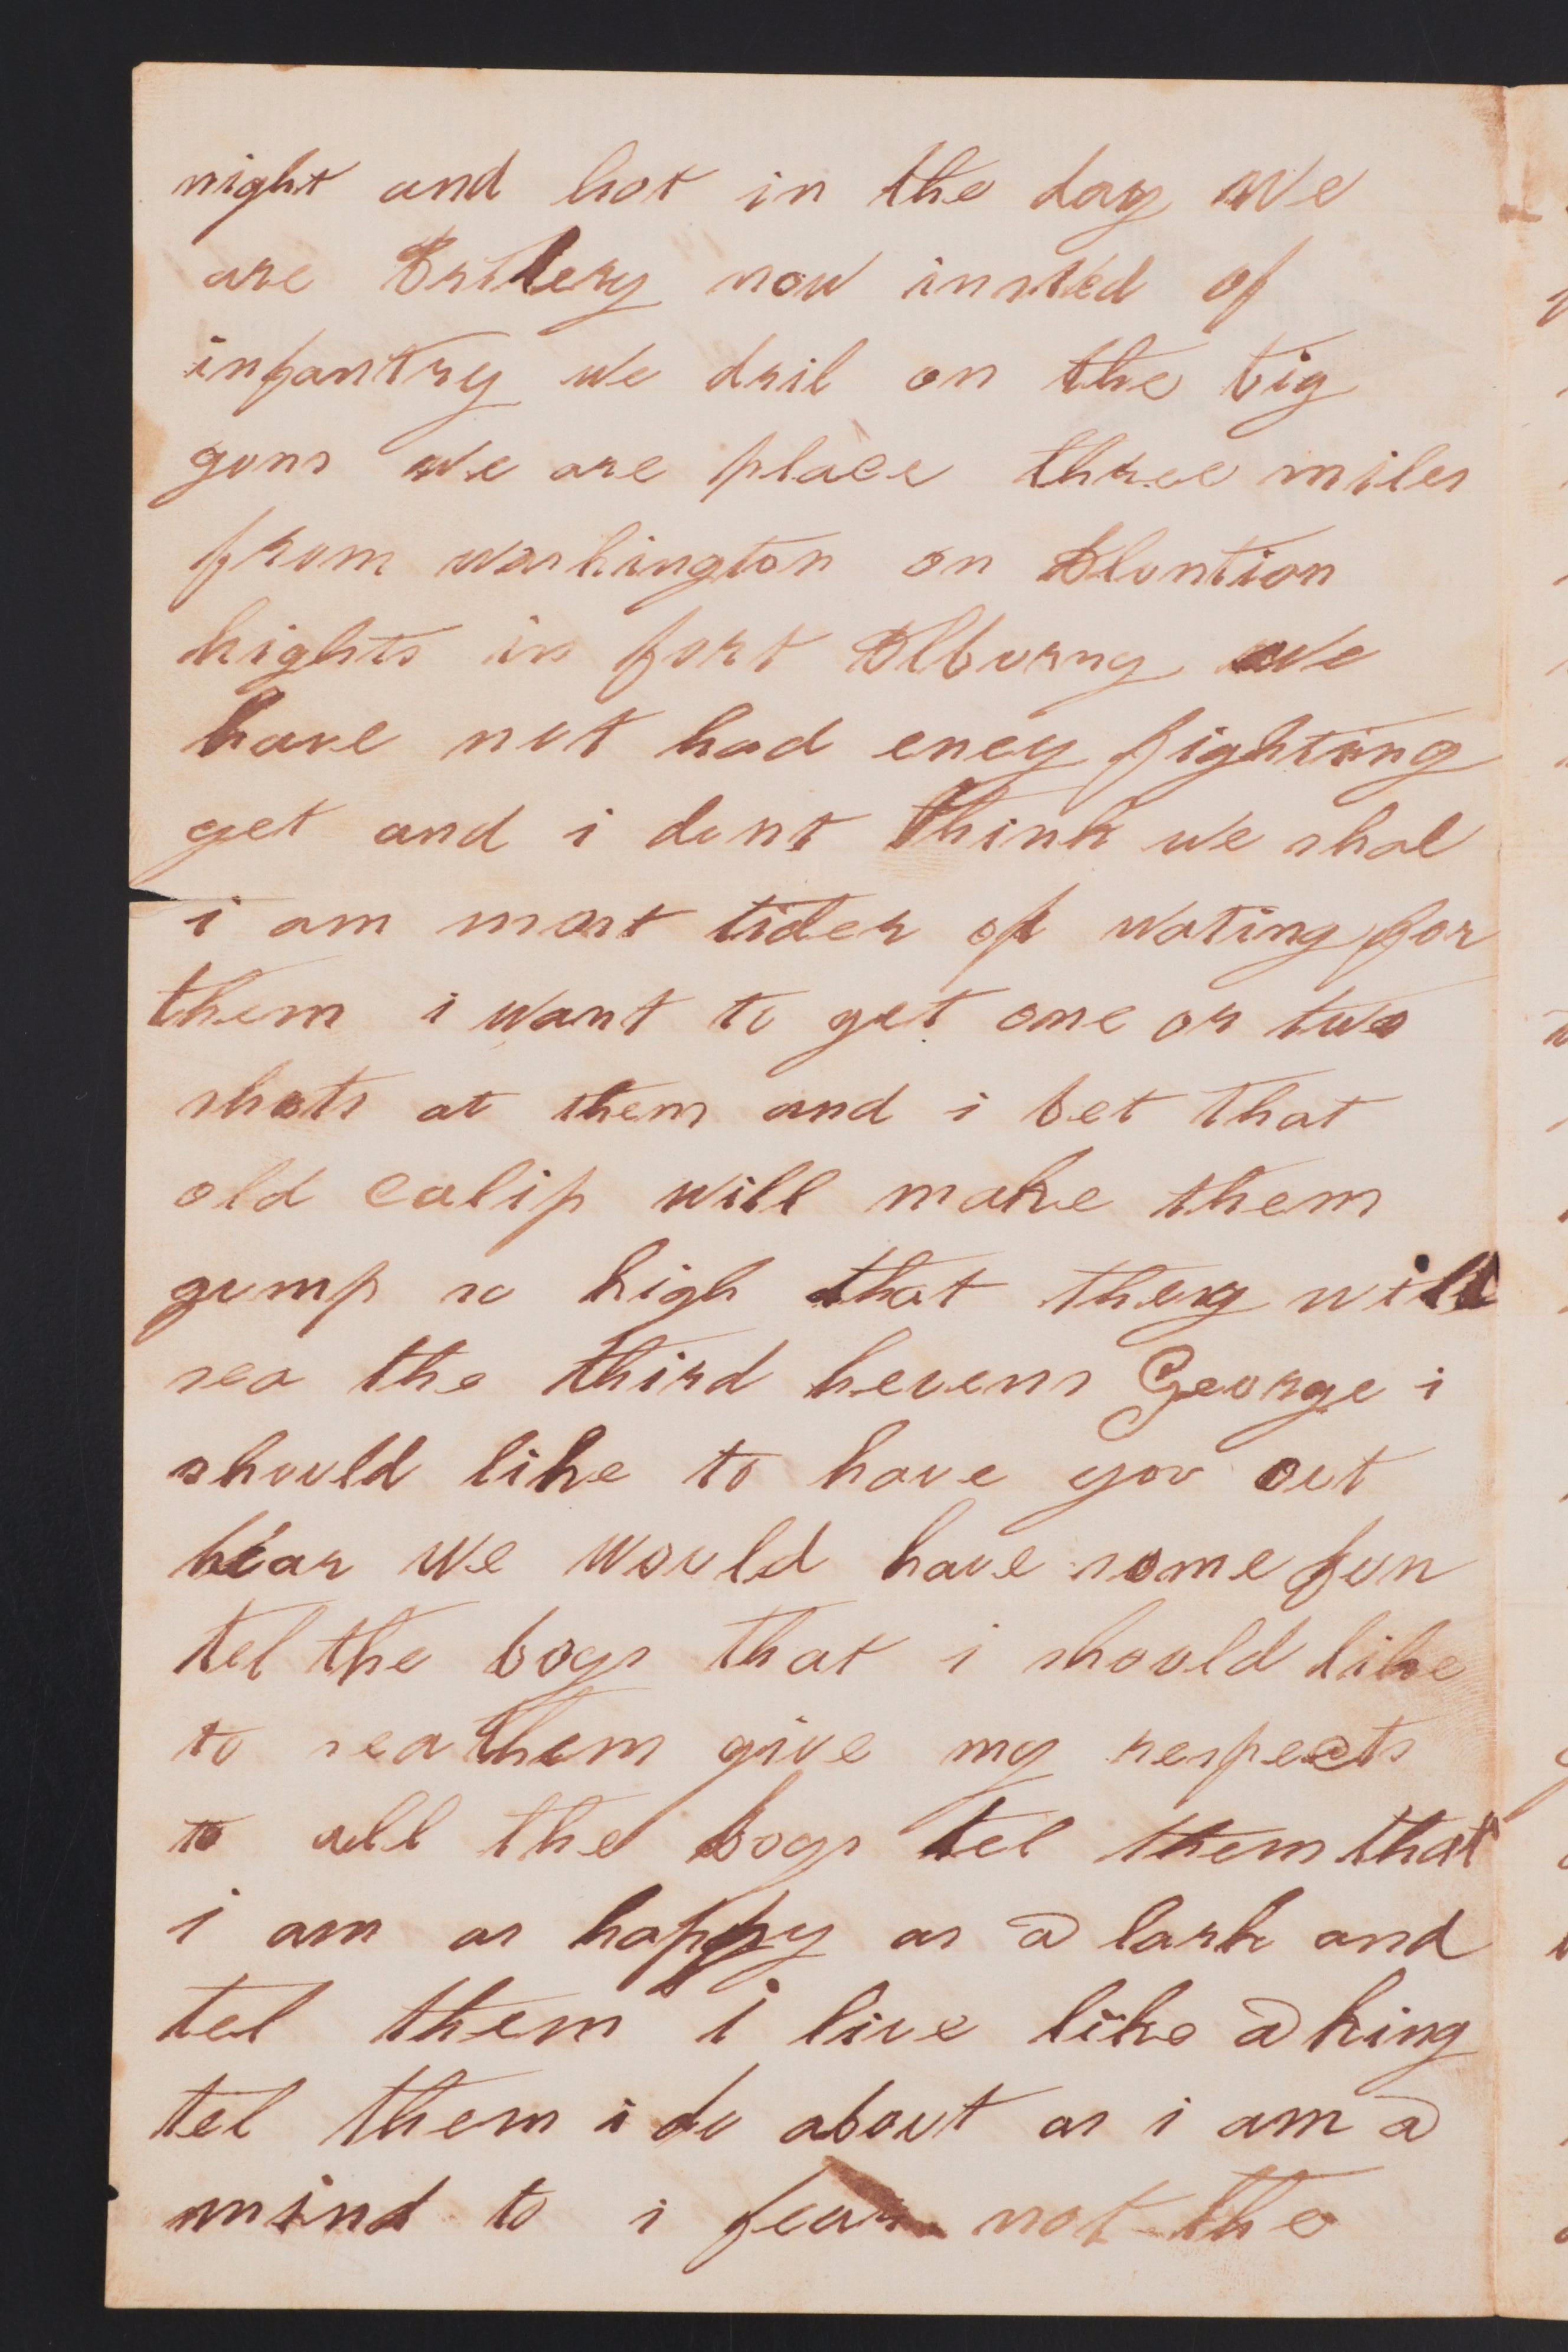 night and hot in the day we
are Ertilery now insted of
infantry we dril on the big
guns we are place three miles
from washington on Aluntion
hights in fort Alburny we
have not had eney fighting
yet and i dont think we shal
i am most tider of wating for
them i want to get one or two
shots at them and i bet that
old calip will make them
gump so high that they will
sea the third hevens George i
should like to have you out
hear we would have some fun
tel the boys that i should like
to sea them give my respects
to all the boys tel them that
i am as happy as a lark and
tel them i live like a king
tel them i do about as i am a
mind to i fear not the